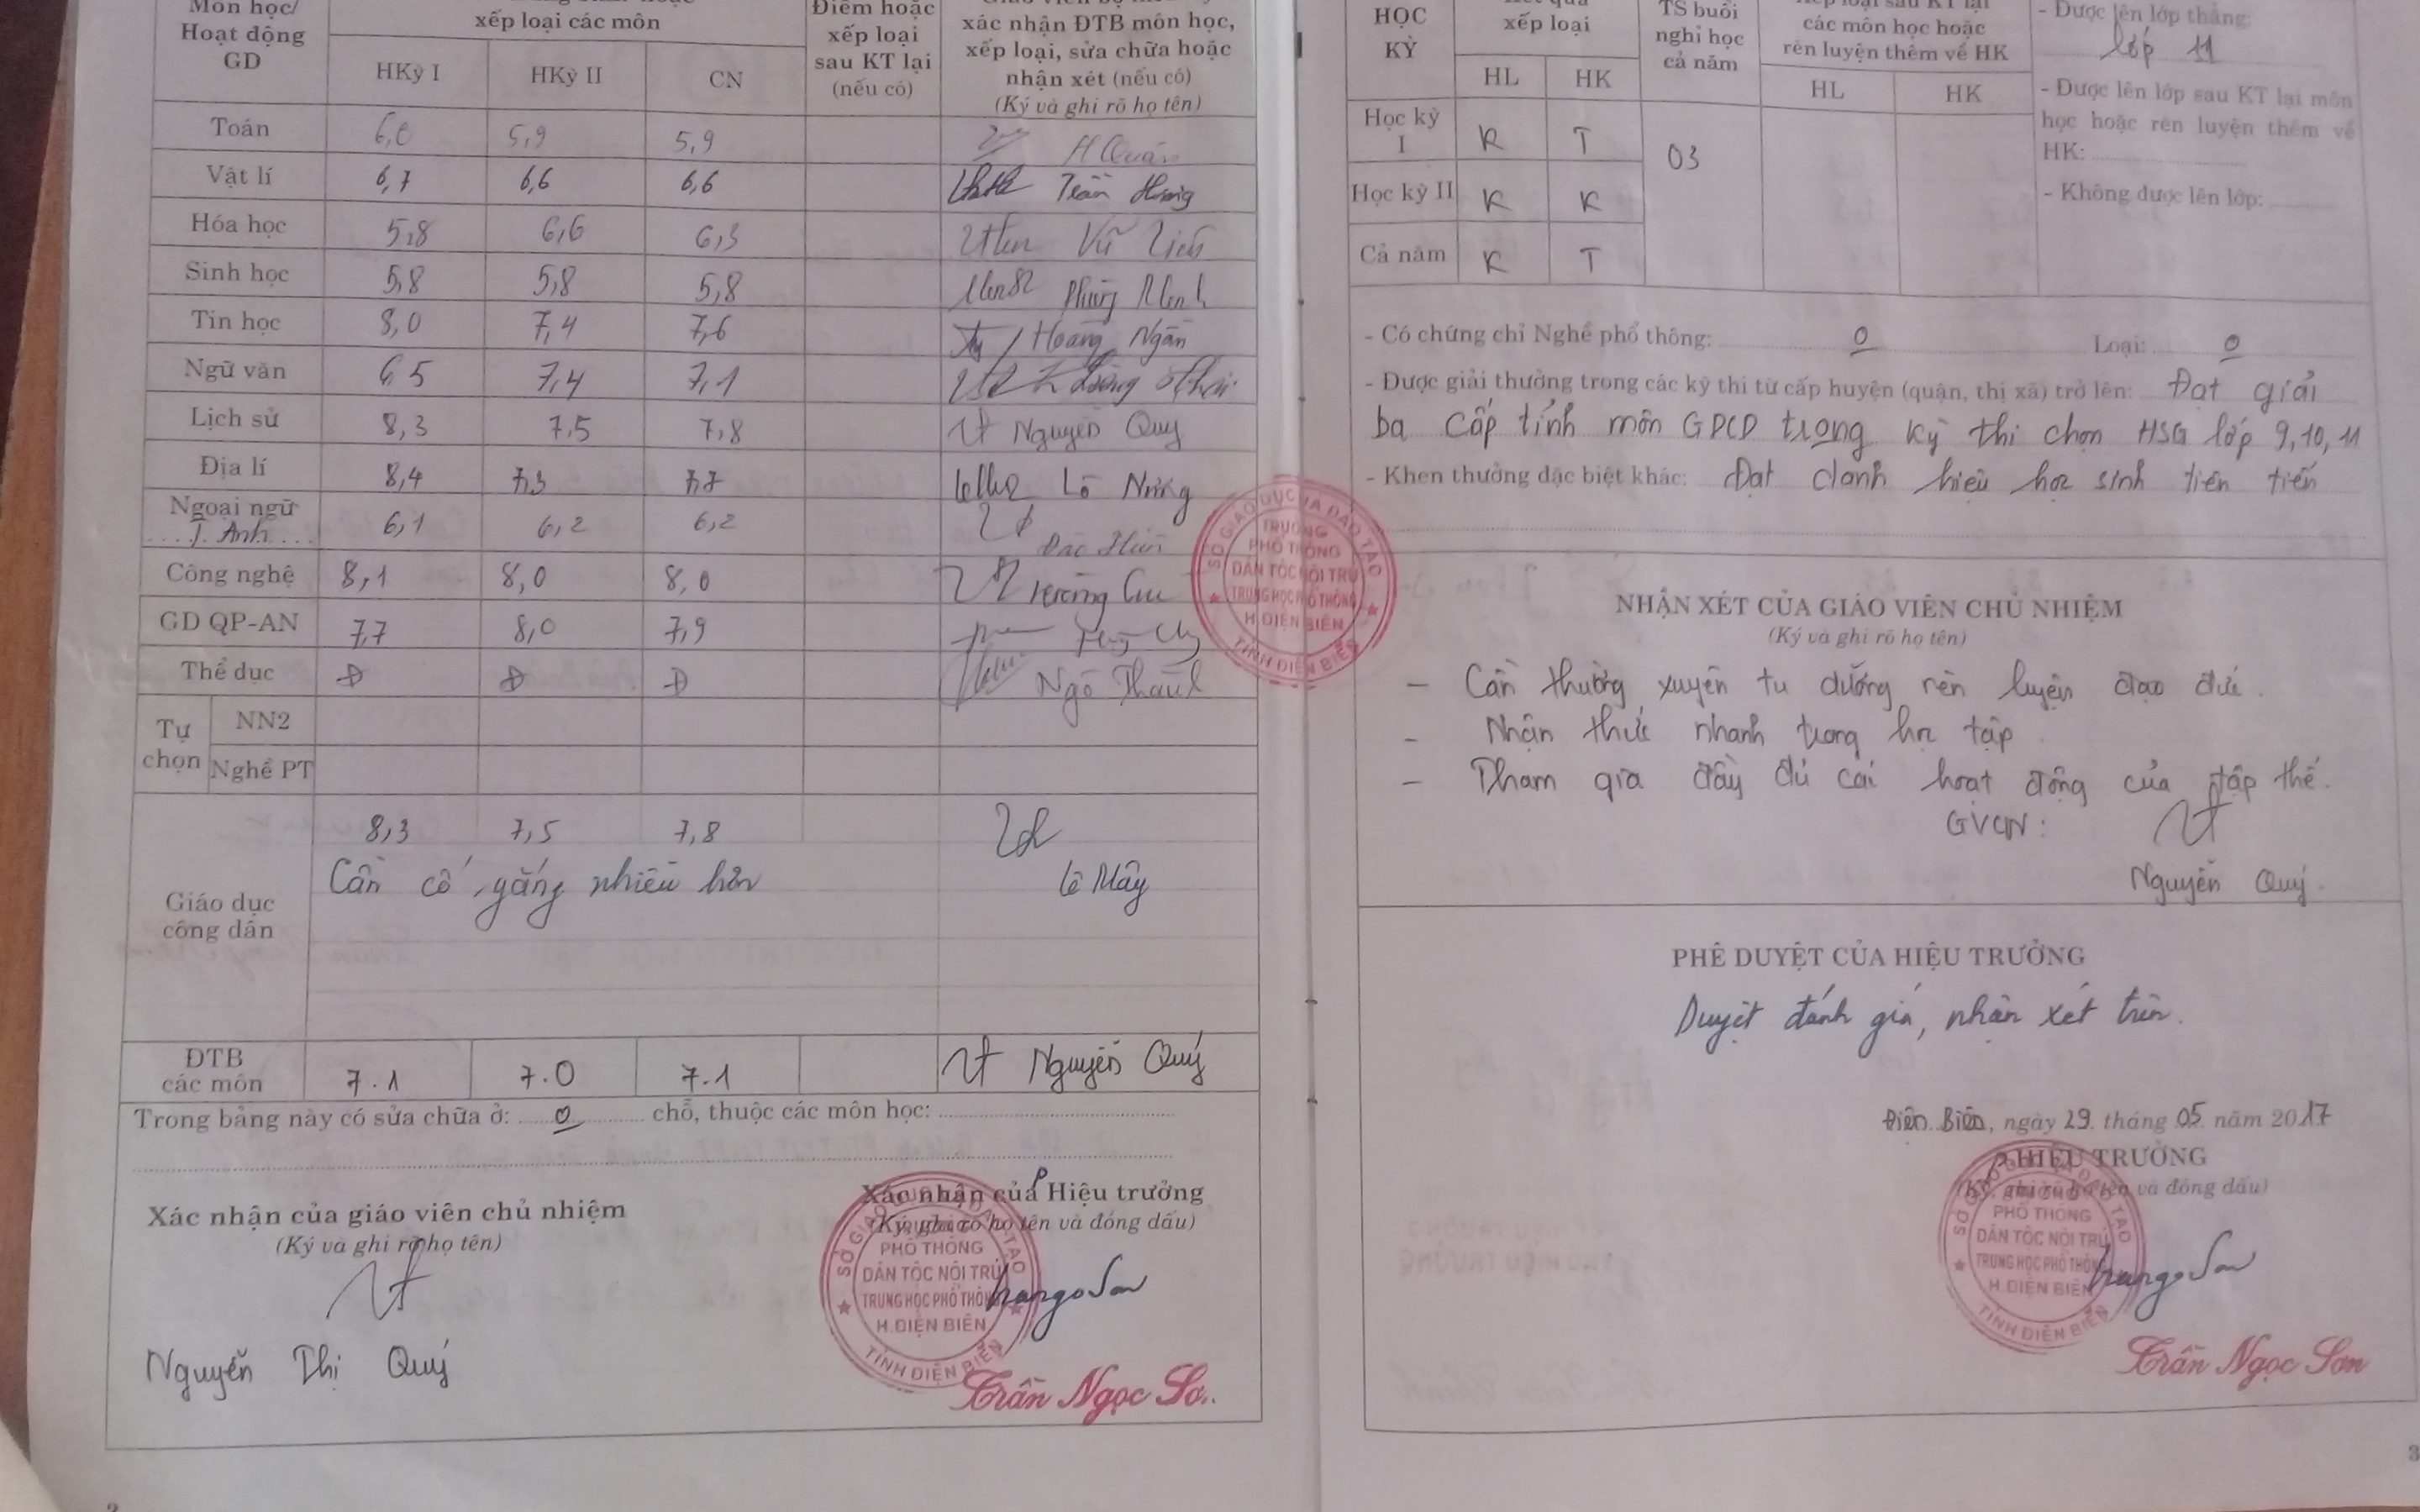 Môn học/
Hoạt động
GD
xếp loại các môn
HKỳ I
HKỳ II
CN
Điểm hoặc
xếp loại
sau KT lại
(nếu có)
xác nhận ĐTB môn học,
xếp loại, sửa chữa hoặc
nhận xét (nếu có)
(Ký và ghi rõ họ tên)
Toán 6,0 5,9 5,9 H Quân
Vật lí 6,7 6,6 6,6 Trần Hương
Hóa học 5,8 6,6 6,3 Vũ Liên
Sinh học 5,8 5,8 5,8 Phùng
Tin học 8,0 7,4 7,6 Hoàng Ngân
Ngữ văn 6,5 7,4 7,1
Lịch sử 8,3 7,5 7,8 Nguyễn Quý
Địa lí 8,4 7,3 7,7 Lò
Ngoại ngữ
T. Anh 6,1 6,2 6,2
Công nghệ 8,1 8,0 8,0
GD QP-AN 7,7 8,0 7,9
Thể dục Đ Đ Đ Ngô
Tự
chọn
NN2
Nghề PT
Giáo dục
công dân
8,3 7,5 7,8
Cần cố gắng nhiều hơn
Lê Mây
ĐTB
các môn 7.1 7.0 7.1 Nguyễn Quý
Trong bảng này có sửa chữa ở: 0 chỗ, thuộc các môn học:
Xác nhận của giáo viên chủ nhiệm
(Ký và ghi rõ họ tên)
Nguyễn Thị Quý
Xác nhận của P Hiệu trưởng
(Ký, ghi rõ họ tên và đóng dấu)
SỞ GIÁO DỤC VÀ ĐÀO TẠO
TRƯỜNG
PHỔ THÔNG
DÂN TỘC NỘI TRÚ
TRUNG HỌC PHỔ THÔNG
H.ĐIỆN BIÊN
TỈNH ĐIỆN BIÊN
Trần Ngọc Sơ
2
HỌC
KỲ
xếp loại
HL
HK
TS buổi
nghỉ học
cả năm
các môn học hoặc
rèn luyện thêm về HK
HL
HK
Học kỳ
I K T
Học kỳ II K K
Cả năm K T
03
- Được lên lớp thẳng:
lớp 11
- Được lên lớp sau KT lại môn
học hoặc rèn luyện thêm về
HK:
- Không được lên lớp:
- Có chứng chỉ Nghề phổ thông: 0 Loại: 0
- Được giải thưởng trong các kỳ thi từ cấp huyện (quận, thị xã) trở lên: Đạt giải
ba cấp tỉnh môn GDCD trong kỳ thi chọn HSG lớp 9,10,11
- Khen thưởng đặc biệt khác: Đạt danh hiệu học sinh tiên tiến
SỞ GIÁO DỤC VÀ ĐÀO TẠO
TRƯỜNG
PHỔ THÔNG
DÂN TỘC NỘI TRÚ
TRUNG HỌC PHỔ THÔNG
H.ĐIỆN BIÊN
TỈNH ĐIỆN BIÊN
NHẬN XÉT CỦA GIÁO VIÊN CHỦ NHIỆM
(Ký và ghi rõ họ tên)
- Cần thường xuyên tu dưỡng rèn luyện đạo đức.
- Nhận thức nhanh trong học tập.
- Tham gia đầy đủ các hoạt động của tập thể.
GVCN:
Nguyễn Quý.
PHÊ DUYỆT CỦA HIỆU TRƯỞNG
Duyệt đánh giá, nhận xét trên.
Điện Biên, ngày 29 tháng 05 năm 2017
P HIỆU TRƯỞNG
(Ký, ghi rõ họ tên và đóng dấu)
SỞ GIÁO DỤC VÀ ĐÀO TẠO
TRƯỜNG
PHỔ THÔNG
DÂN TỘC NỘI TRÚ
TRUNG HỌC PHỔ THÔNG
H.ĐIỆN BIÊN
TỈNH ĐIỆN BIÊN
Trần Ngọc Sơn
3